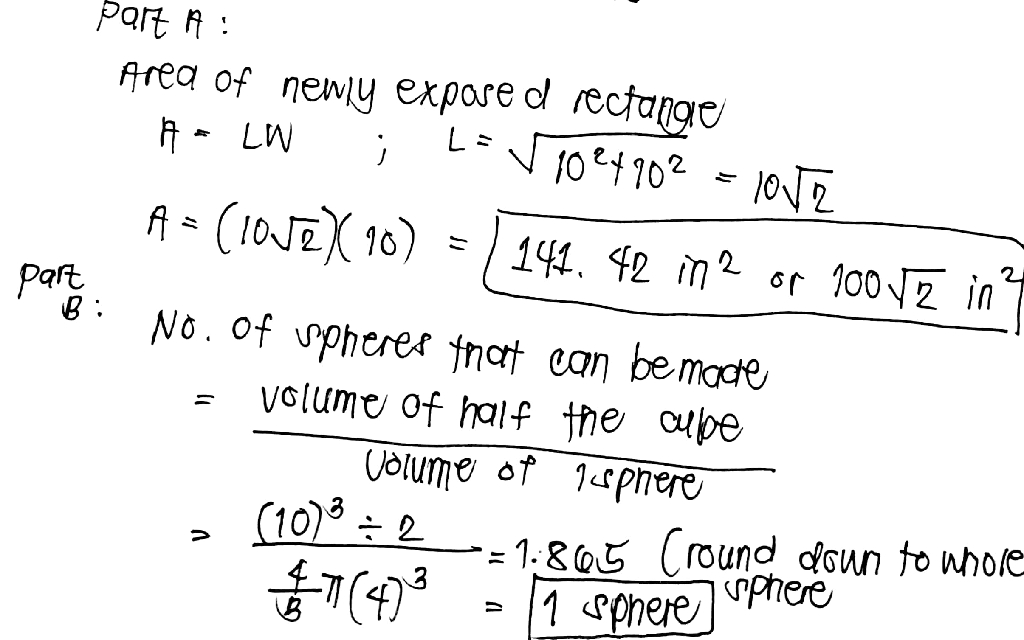 Part A :
Area of newly exposed rectangle
A = LW ; L = √(10²+10²) = 10√2
A = (10√2)(10) = 141.42 in² or 100√2 in²
Part B :
No. of spheres that can be made
= volume of half the cube
volume of 1 sphere
= (10)³ ÷ 2
4/3 π(4)³
= 1.865 (round down to whole sphere
= 1 sphere